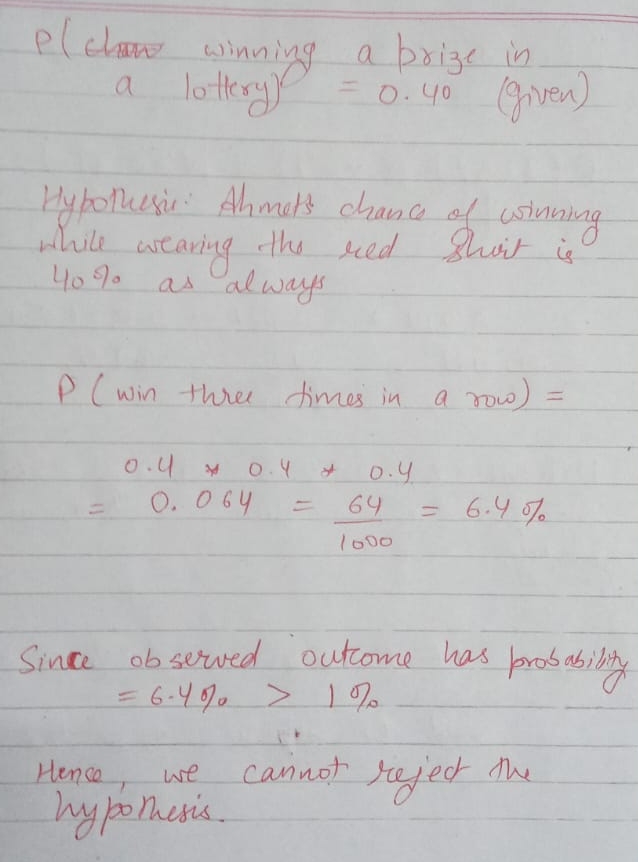 P( winning a prize in
a lottery) = 0.40 (given)
Hypothesis: Ahmet's chance of winning
while wearing the red Shirt is
40% as always
P ( win three times in a row) =
0.4 * 0.4 * 0.4
= 0.064 = 64/1000 = 6.4 %
Since observed outcome has probability
= 6.4% > 1%
Hence, we cannot reject the
hypothesis.